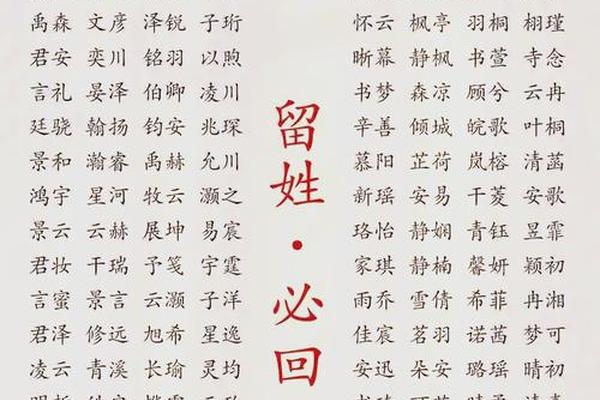 禹森 文彦 泽锐 子珩
君安 奕川 铭羽 以煦
言礼 晏泽 伯卿 凌川
廷骁 翰扬 钧安 兆琛
景和 瀚睿 禹赫 允川
鸿宇 星河 牧云 灏之
景云 云赫 展坤 易宸
君妆 干瑞 予笺 宇霆
言蜜 景言 云灏 子洋
君泽 修远 旭希 星逸
凌云 青溪 长瑜 灵均
留姓·必回
怀云 枫亭 羽桐 栩瑾
晰幕 静枫 书萱 寺念
书梦 森凉 顾兮 云冉
辛善 倾城 皖歌 叶桐
慕阳 芷荷 岚榕 清菡
新瑶 安易 干菱 安歌
珞怡 静娴 青钰 昱霏
家琪 静楠 馨妍 颖初
雨乔 雪倩 希菲 冉湘
佳宸 茗羽 诺茜 梦可
安迅 朵安 璐瑶 晴初